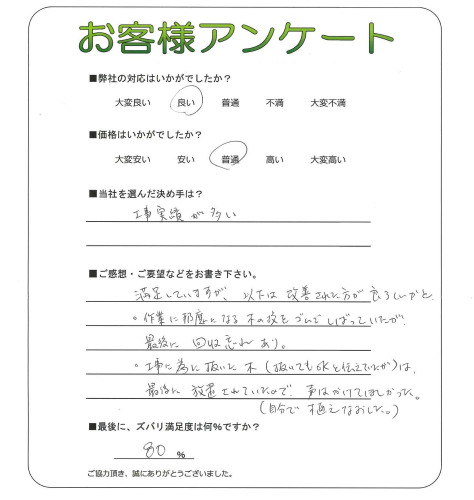 お客様アンケート
■弊社の対応はいかがでしたか？
大変良い 良い 普通 不満 大変不満
■価格はいかがでしたか？
大変安い 安い 普通 高い 大変高い
■当社を選んだ決め手は？
工事実績が多い
■ご感想・ご要望などをお書き下さい。
満足していますが、以下は改善された方が良ろしいかと
。作業に邪魔になる木の枝をゴムでしばっていたが
最後に回収忘れあり。
。工事に為に抜いた木（抜いてもOKと伝えていたが）は、
最後に放置されていたので、声はかけてほしかった。
（自分で植えなおした。）
■最後に、ズバリ満足度は何％ですか？
80 ％
ご協力頂き、誠にありがとうございました。